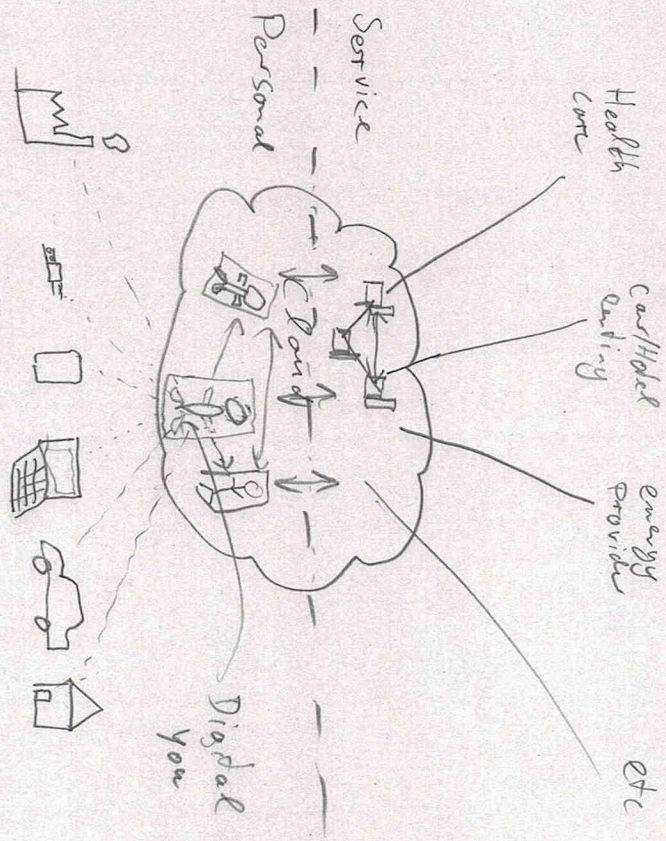 Health
care
car/Hotel
renting
energy
Provider
etc
Service
Personal
Cloud
Digital
you